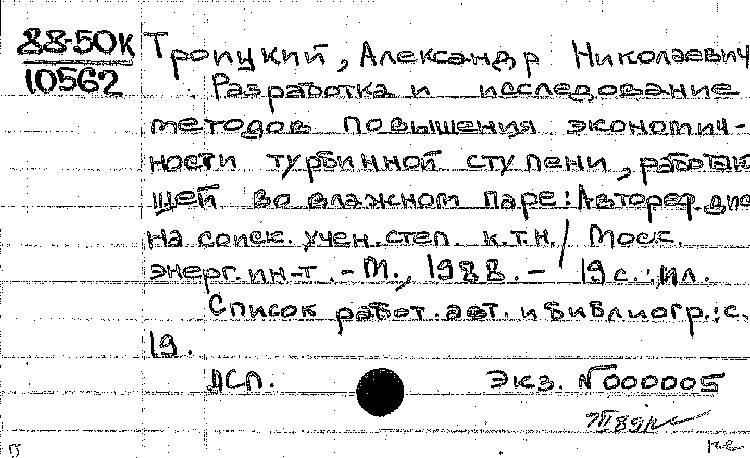 88-50к
10562
Троицкий, Александр Николаевич
Разработка и исследование
методов повышения экономич-
ности турбинной ступени, работаю
щей во влажном паре: Автореф. дис
на соиск. учен. степ. к.т.н. / Моск.
энерг. ин-т. - М., 1988. - 19 с.: ил.
Список работ. авт. и библиогр.: с.
19.
ДСП. экз. N 000005